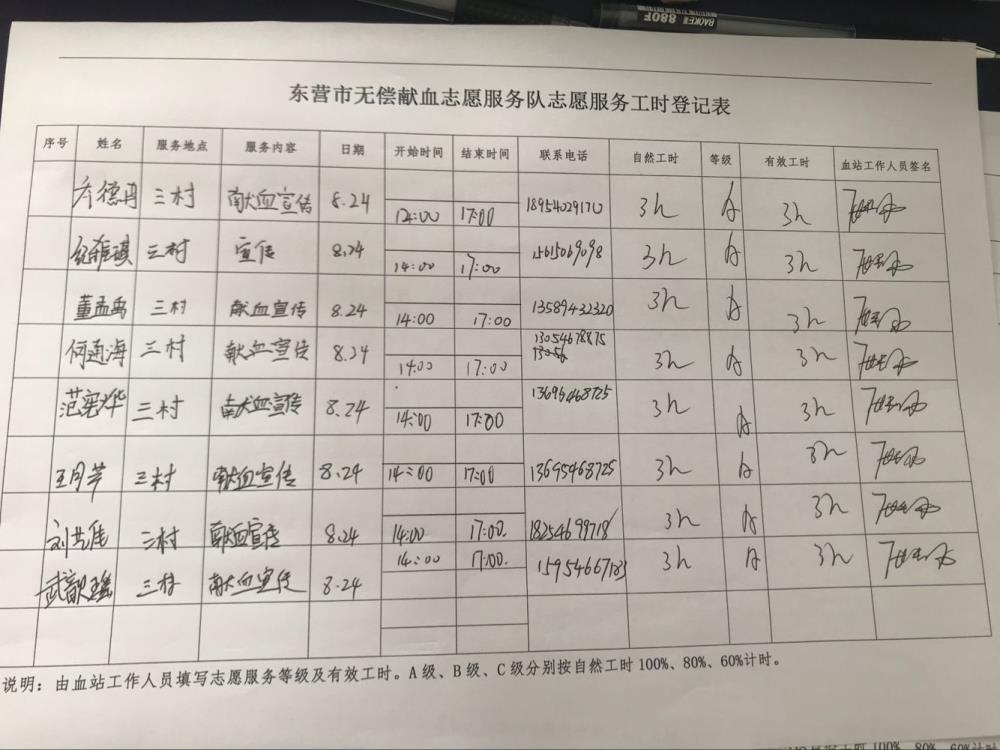 BAOKE 880F
东营市无偿献血志愿服务队志愿服务工时登记表
序号 姓名 服务地点 服务内容 日期 开始时间 结束时间 联系电话 自然工时 等级 有效工时 血站工作人员签名
德 三村 献血宣传 8.24 17:00 18954029170 3h A 3h
三村 宣传 8.24 14:00 17:00 15615069098 3h A 3h
董孟禹 三村 献血宣传 8.24 14:00 17:00 13589432320 3h A 3h
何通海 三村 献血宣传 8.24 14:00 17:00 13054678875 3h A 3h
范宪华 三村 献血宣传 8.24 14:00 17:00 13695468725 3h A 3h
王月芳 三村 献血宣传 8.24 14:00 17:00 13695468725 3h A 3h
刘 三村 献血宣传 8.24 14:00 17:00. 18254699718 3h A 3h
武歆瑶 三村 献血宣传 8.24 14:00 17:00. 3h A 3h
说明：由血站工作人员填写志愿服务等级及有效工时。A级、B级、C级分别按自然工时100%、80%、60%计时。